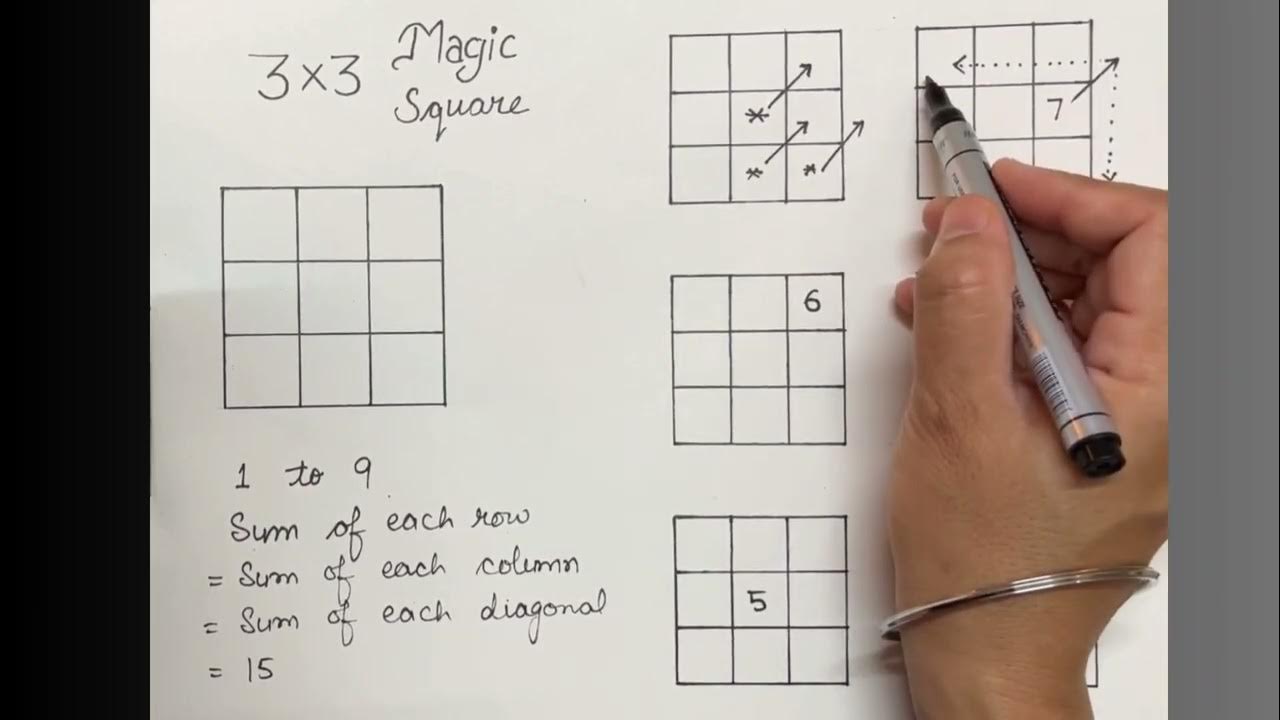 3×3 Magic
Square
*
* *
7
6
5
1 to 9
Sum of each row
= Sum of each column
= Sum of each diagonal
= 15